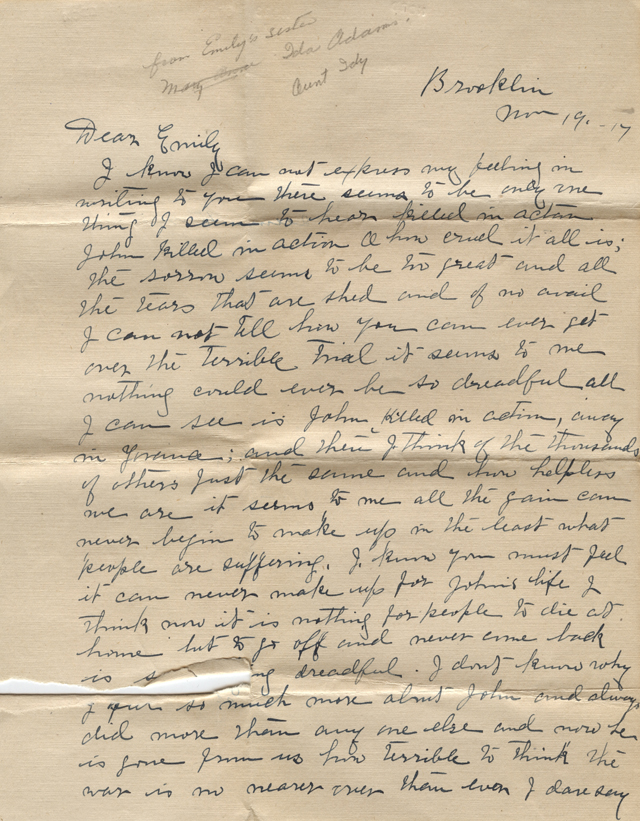 from Emily's sister
Ida Adams.
Aunt Idy
Brooklin
Nov 19. - 17
Dear Emily
I know I can not express my feeling in
writing to you there seems to be only one
thing I seem to hear killed in acton
John killed in action O how cruel it all is;
the sorrow seems to be to great and all
the tears that are shed and of no avail
I can not tell how you can ever get
over the terrible trial it seems to me
nothing could ever be so dreadful all
I can see is John killed in action, away
in France; and then I think of the thousands
of others just the same and how helpless
we are it seems to me all the gain can
never begin to make up in the least what
people are suffering. I know you must feel
it can never make up for John's life I
think now it is nothing for people to die at
home but to go off and never come back
is dreadful. I don't know why
I so much more about John and always
did more than any one else and now he
is gone from us how terrible to think the
war is no nearer over than ever I dare say